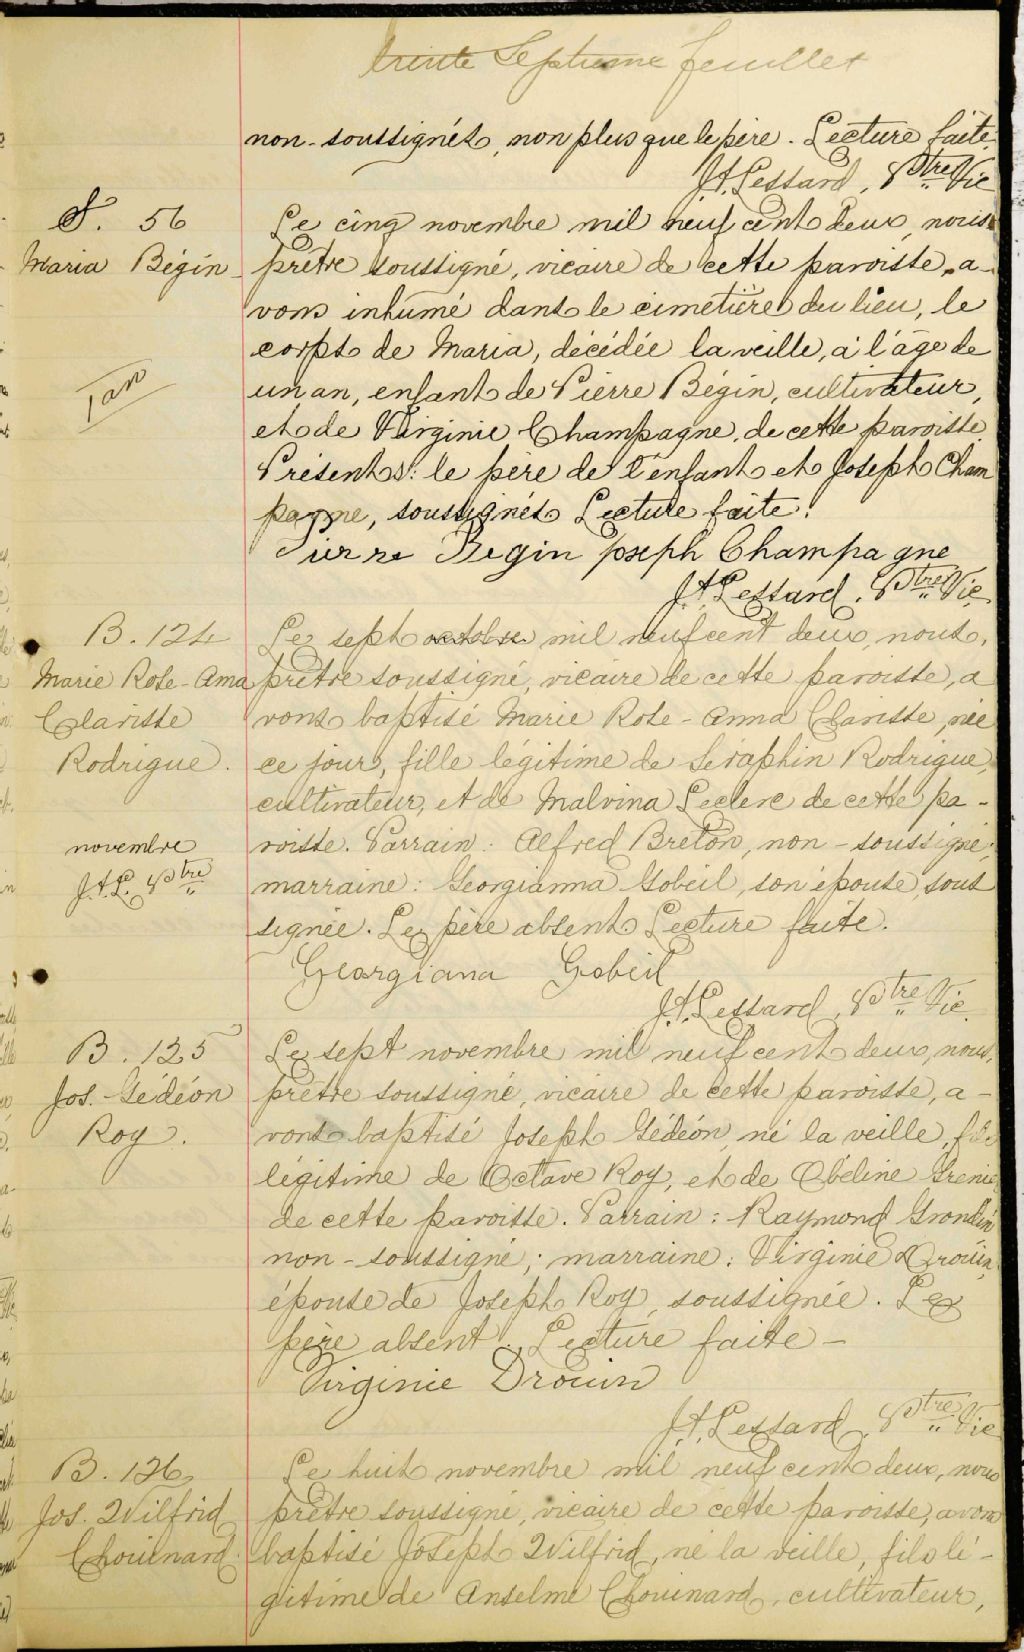 trente Septième feuillet
non-soussignés, non plus que le père. Lecture faite.
J.A. Lessard, Ptre Vic
S. 56
Maria Bégin
1 an
Le cinq novembre mil neuf cent deux, nous
prêtre soussigné, vicaire de cette paroisse, a-
vons inhumé dans le cimetière du lieu, le
corps de Maria, décédée la veille, à l'âge de
un an, enfant de Pierre Bégin, cultivateur,
et de Virginie Champagne, de cette paroisse.
Présents: le père de l'enfant et Joseph Cham
pagne, soussignés Lecture faite.
Pierre Begin Joseph Champagne
J.A. Lessard, Ptre Vic
B. 124
Marie Rose-Ama
Clarisse
Rodrigue.
novembre
J.A.L. Ptre
Le sept octobre mil neuf cent deux, nous,
prêtre soussigné, vicaire de cette paroisse, a
vons baptisé Marie Rose-Anna Clarisse, née
ce jour, fille légitime de Séraphin Rodrigue,
cultivateur, et de Malvina Leclerc de cette pa-
roisse. Parrain: Alfred Breton, non-soussigné;
marraine: Georgianna Gobeil, son épouse, sous
signée. Le père absent Lecture faite.
Georgiana Gobeil
J.A. Lessard, Ptre Vic.
B. 125
Jos.-Gédéon
Roy.
Le sept novembre mil neuf cent deux, nous,
prêtre soussigné, vicaire de cette paroisse, a-
vons baptisé Joseph Gédéon, né la veille, fils
légitime de Octave Roy, et de Obéline Grenier
de cette paroisse. Parrain: Raymond Grondin
non-soussigné; marraine: Virginie Drouin,
épouse de Joseph Roy, soussignée. Le
père absent. Lecture faite-
Virginie Drouin
J.A. Lessard, Ptre Vic
B. 126
Jos. Wilfrid
Chouinard.
Le huit novembre mil neuf cent deux, nous
prêtre soussigné, vicaire de cette paroisse, avons
baptisé Joseph Wilfrid, né la veille, fils lé-
gitime de Anselme Chouinard, cultivateur,